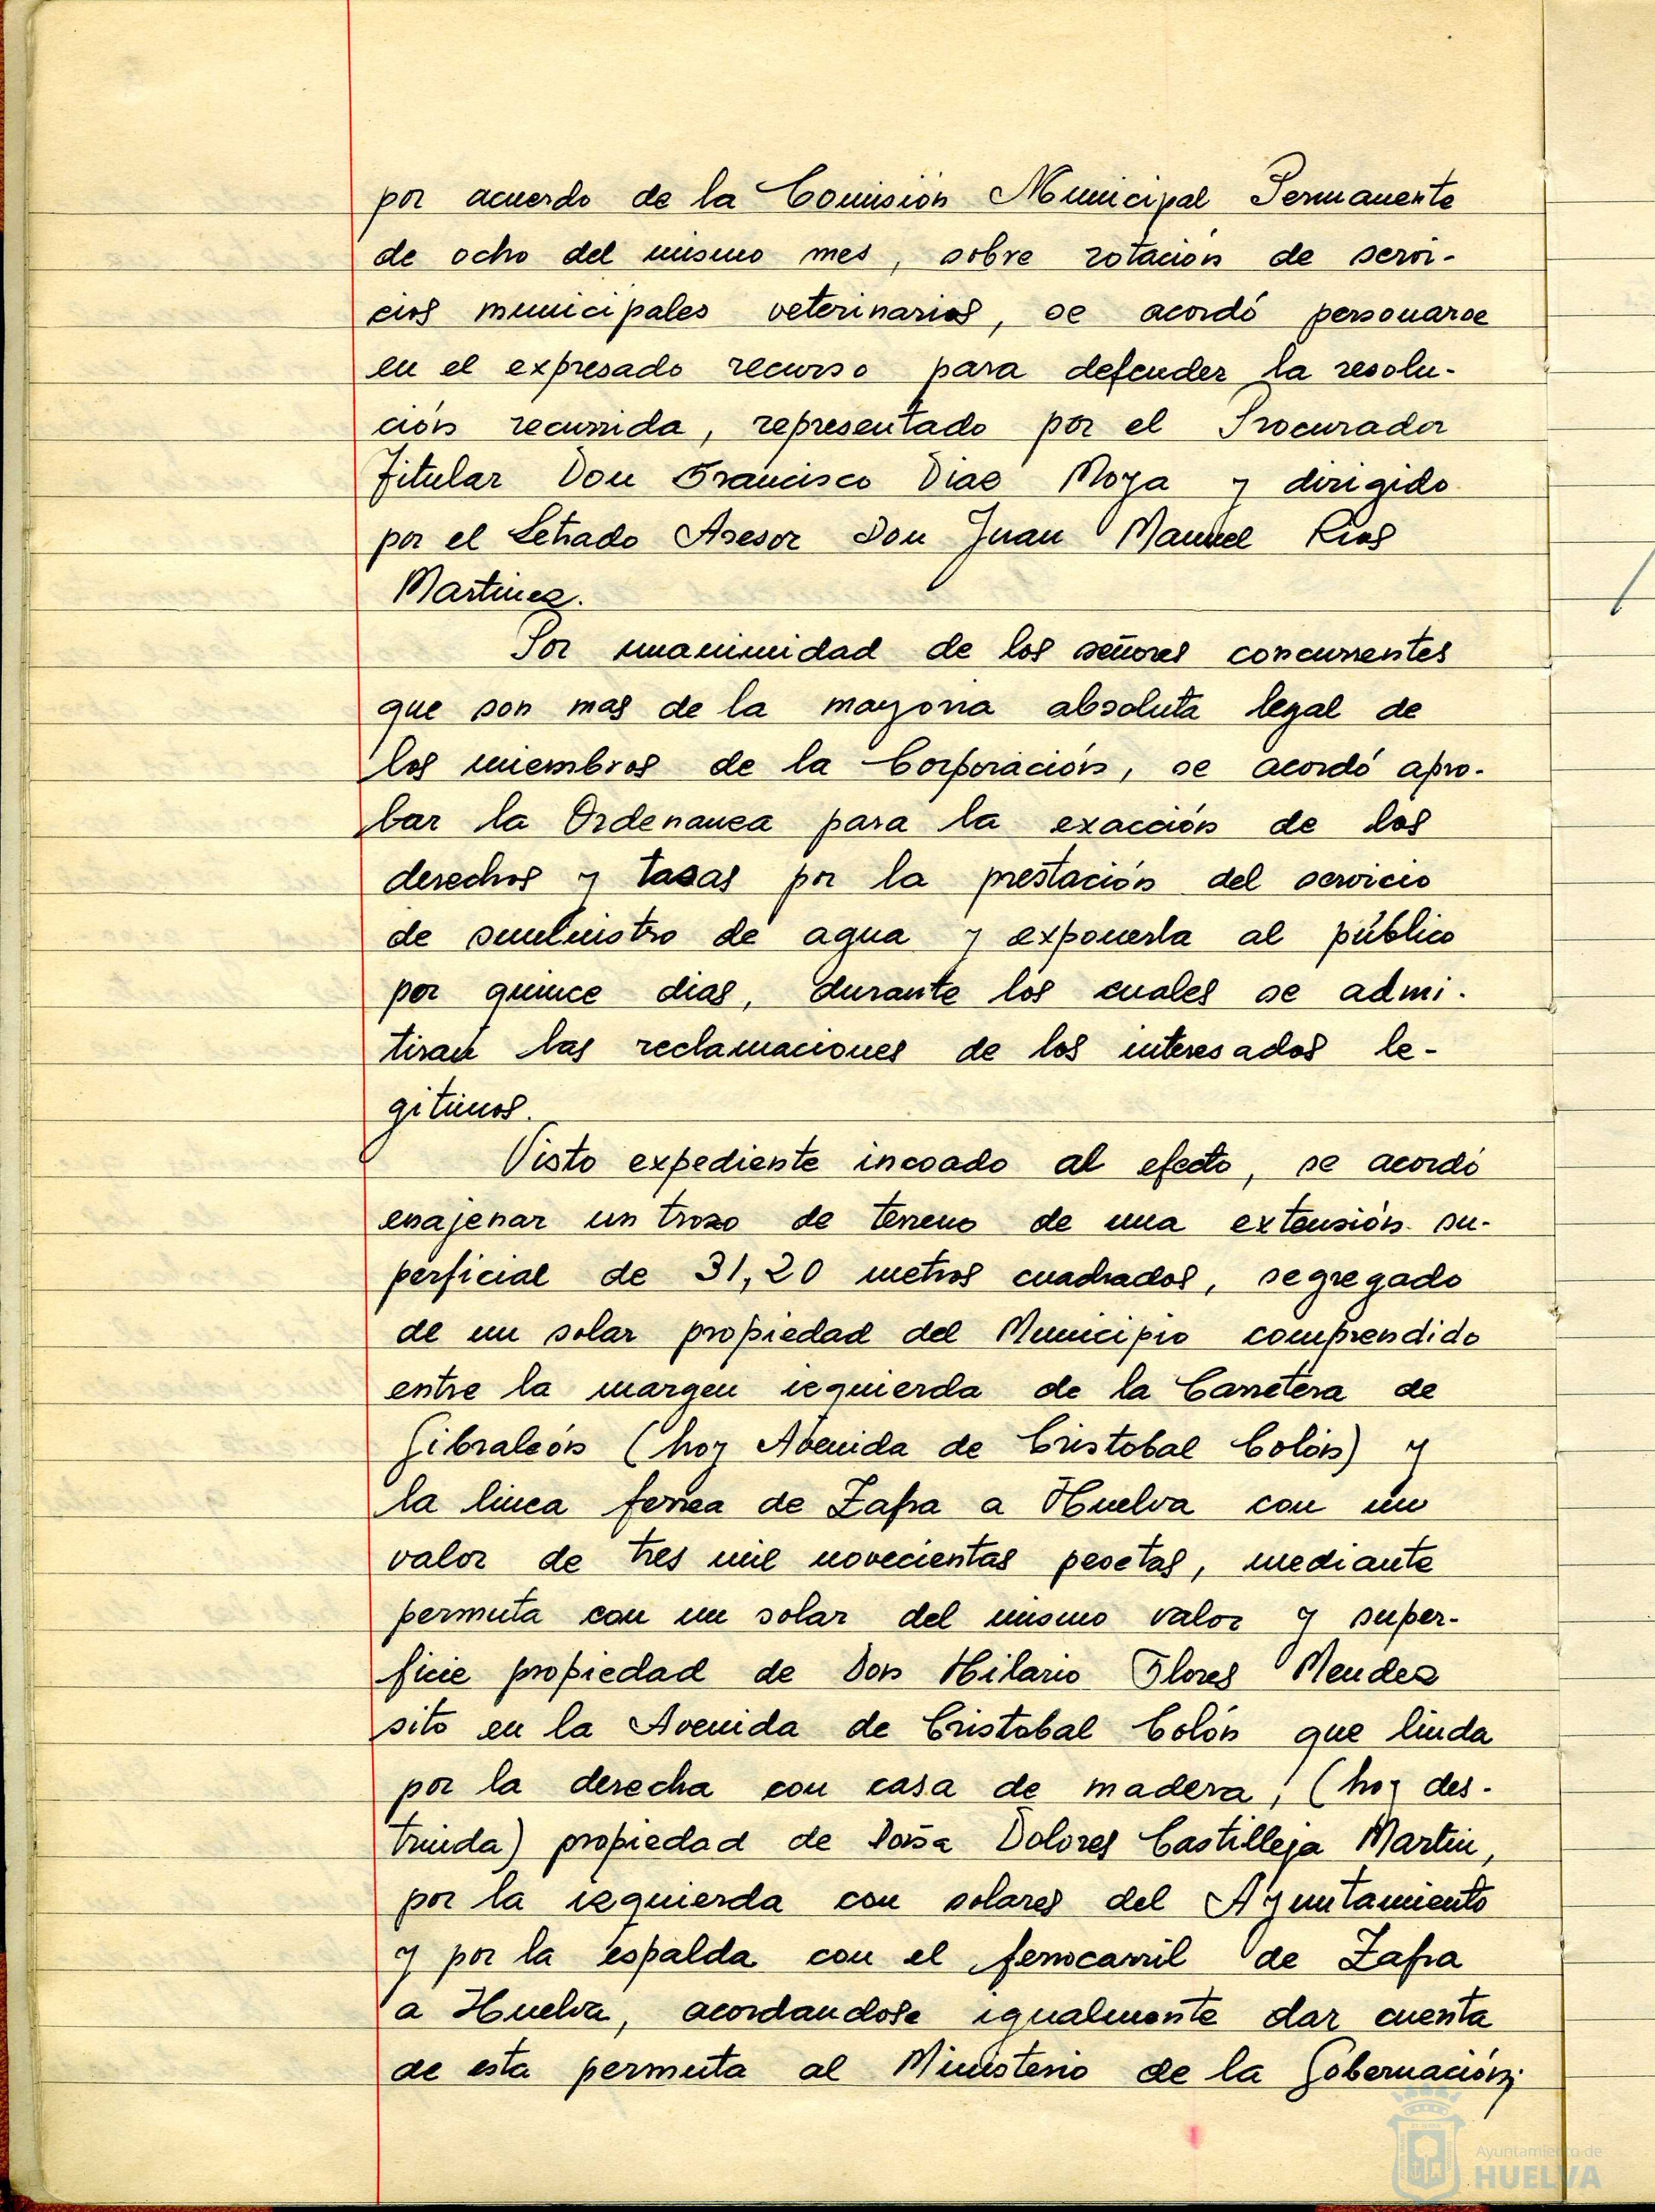 por acuerdo de la Comisión Municipal Permanente
de ocho del mismo mes, sobre rotación de servi-
cios municipales veterinarios, se acordó personarse
en el expresado recurso para defender la resolu-
ción recurrida, representado por el Procurador
Titular Don Francisco Diaz Moya y dirigido
por el Letrado Asesor Don Juan Manuel Rios
Martinez.
Por unanimidad de los señores concurrentes
que son mas de la mayoria absoluta legal de
los miembros de la Corporación, se acordó apro-
bar la Ordenanza para la exacción de los
derechos y tasas por la prestación del servicio
de suministro de agua y exponerla al público
por quince dias, durante los cuales se admi-
tiran las reclamaciones de los interesados le-
gitimos.
Visto expediente incoado al efecto, se acordó
enajenar un trozo de terreno de una extensión su-
perficial de 31,20 metros cuadrados, segregado
de un solar propiedad del Municipio comprendido
entre la margen izquierda de la Carretera de
Gibraleón (hoy Avenida de Cristobal Colón) y
la linea ferrea de Zafra a Huelva con un
valor de tres mil novecientas pesetas, mediante
permuta con un solar del mismo valor y super-
ficie propiedad de Don Hilario Flores Mendez
sito en la Avenida de Cristobal Colón que linda
por la derecha con casa de madera, (hoy des-
truida) propiedad de Doña Dolores Castilleja Martin,
por la izquierda con solares del Ayuntamiento
y por la espalda con el ferrocarril de Zafra
a Huelva, acordandose igualmente dar cuenta
de esta permuta al Ministerio de la Gobernación;
Ayuntamiento de
HUELVA